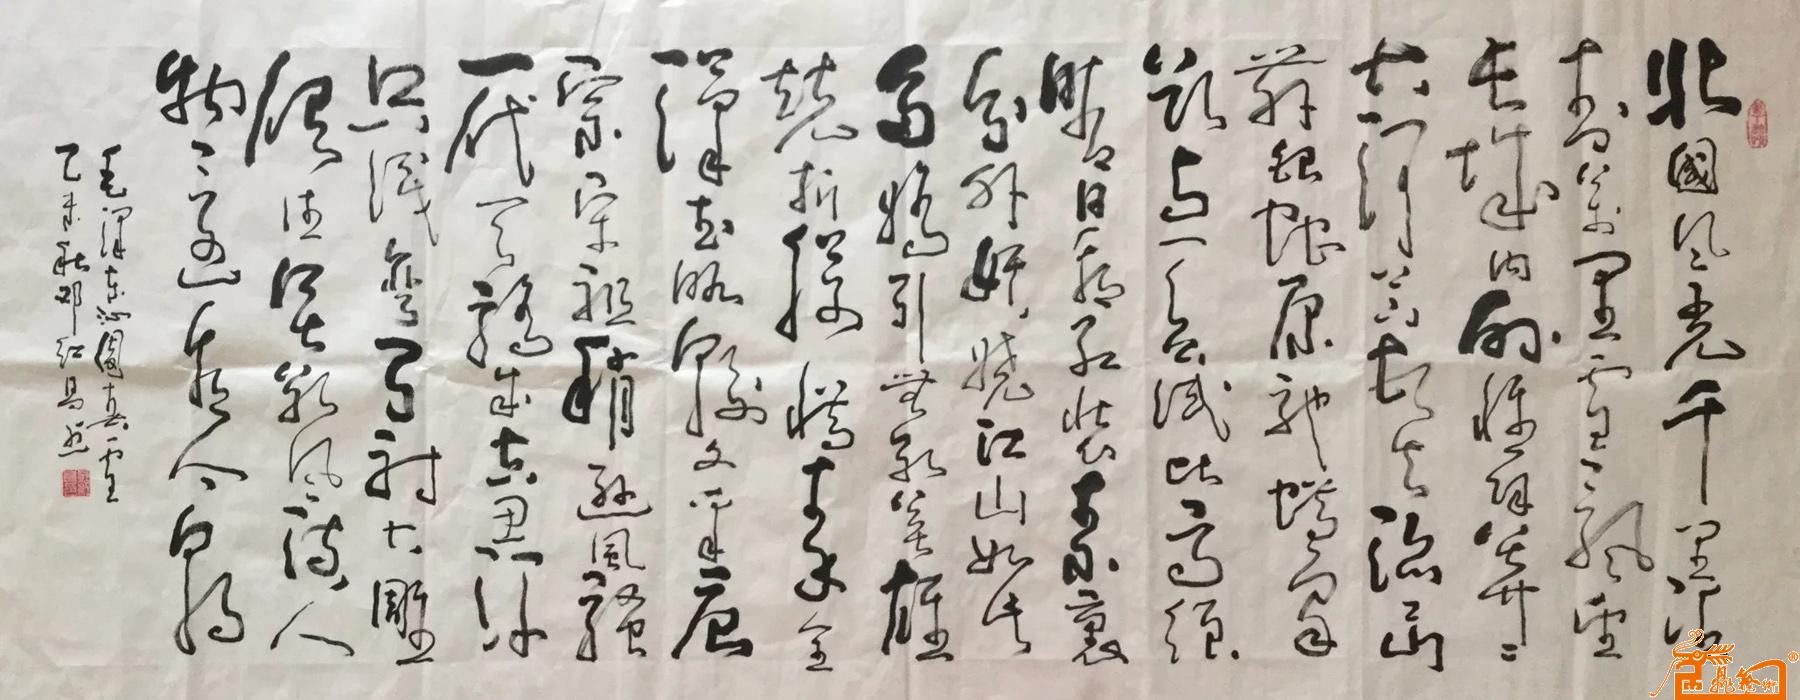 北國风光千里冰
封萬里雪飘望
长城内外惟馀莽〻
大河上下顿失滔〻山
舞银蛇原驰蜡象
欲与天公试比高须
晴日看红装素裹
分外妖娆江山如此
多娇引無数英雄
竞折腰惜秦皇
汉武略输文采唐
宗宋祖稍逊風騷
一代天骄成吉思汗
只识弯弓射大雕
俱往矣数风流人
物还看今朝
毛泽东沁園春雪
乙未秋邓红昌书